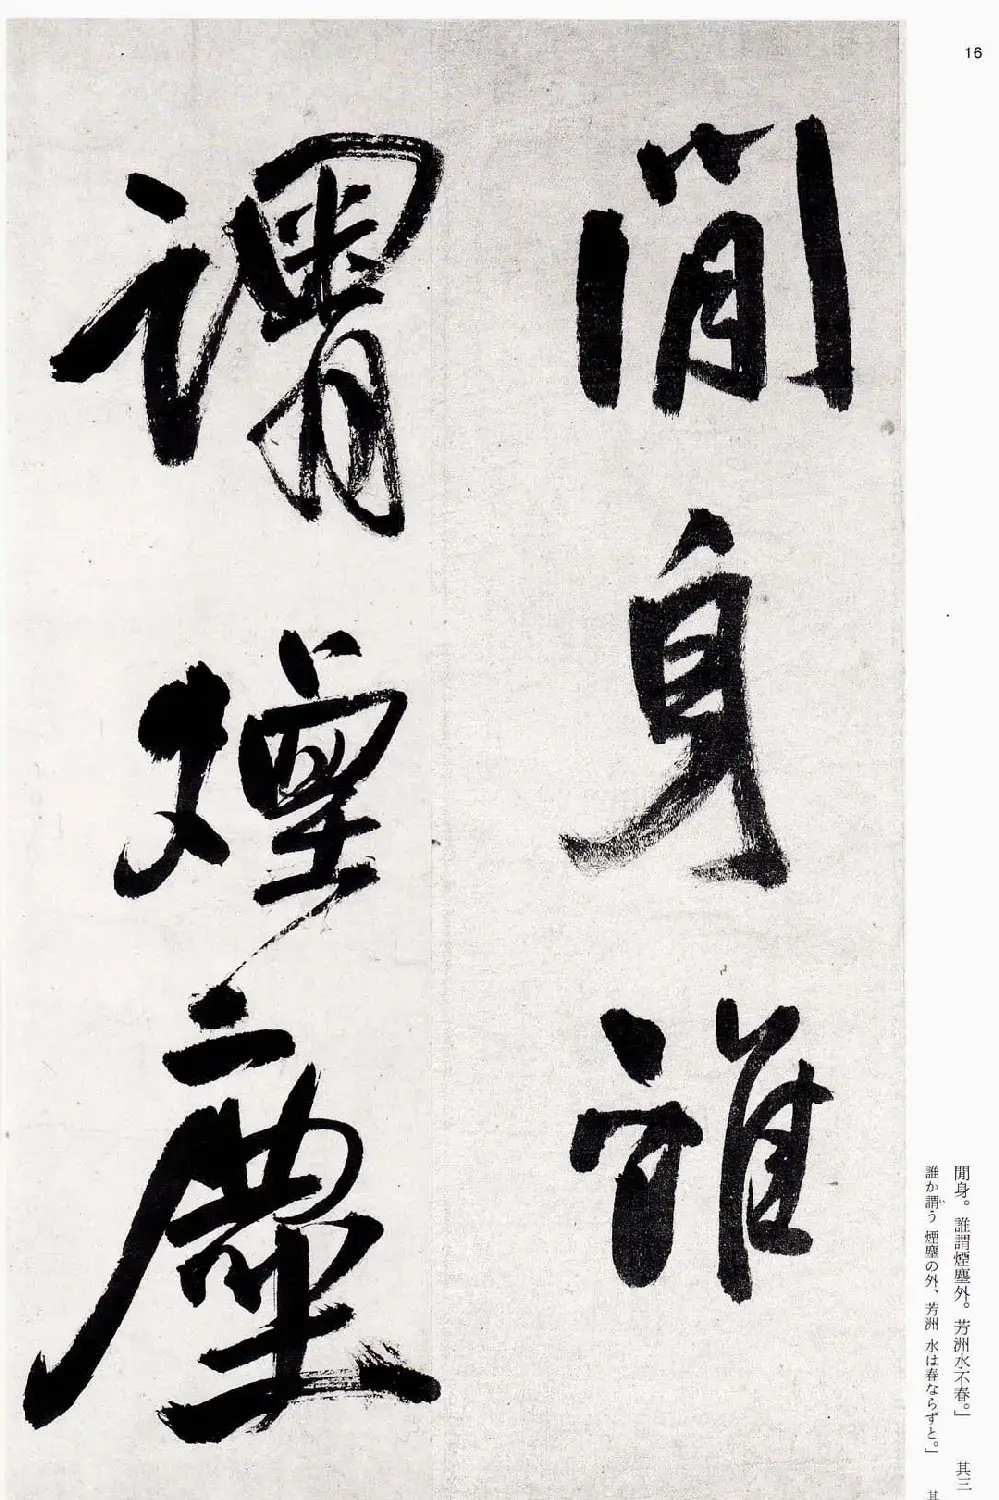 16
閒身誰
謂煙塵
閒身。誰謂煙塵外。芳洲水不春。」 其三
誰か謂う 煙塵の外、芳洲 水は春ならずと。」 其